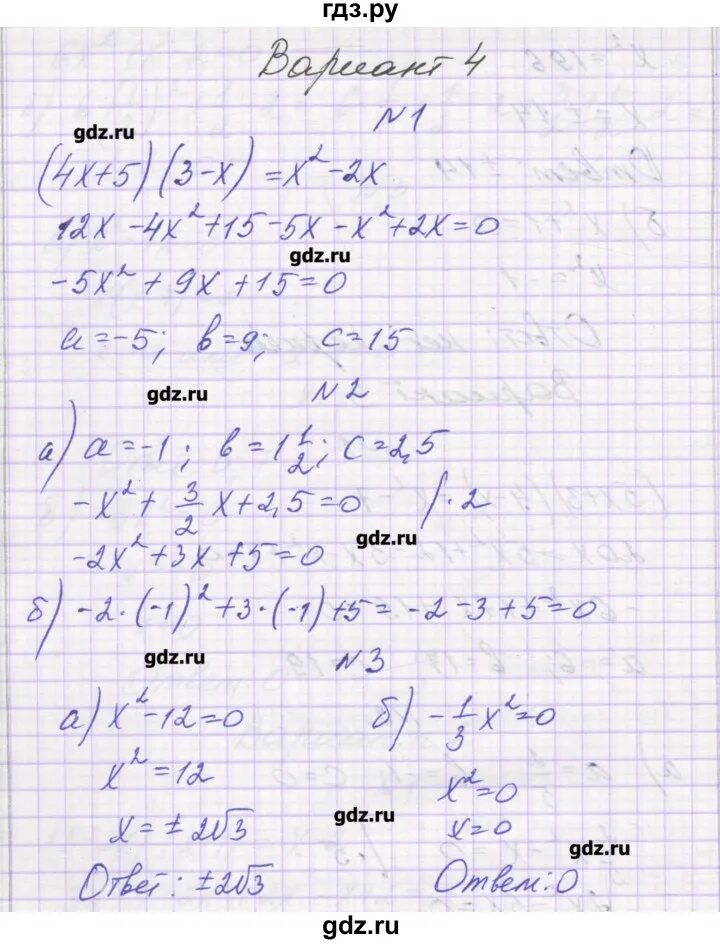 гдз.ру
Вариант 4
N1
gdz.ru
(4x+5)(3-x)=x²-2x
12x-4x²+15-5x-x²+2x=0
gdz.ru
-5x²+9x+15=0
a=-5; b=9; c=15
gdz.ru
N2
а) a=-1; b=1 1/2; c=2,5
-x²+3/2x+2,5=0 /·2
gdz.ru
-2x²+3x+5=0
б) -2·(-1)²+3·(-1)+5=-2-3+5=0
gdz.ru
N3
а) x²-12=0
x²=12
x=±2√3
Ответ: ±2√3
б) -1/3x²=0
x²=0
x=0
Ответ: 0
gdz.ru
gdz.ru
gdz.ru